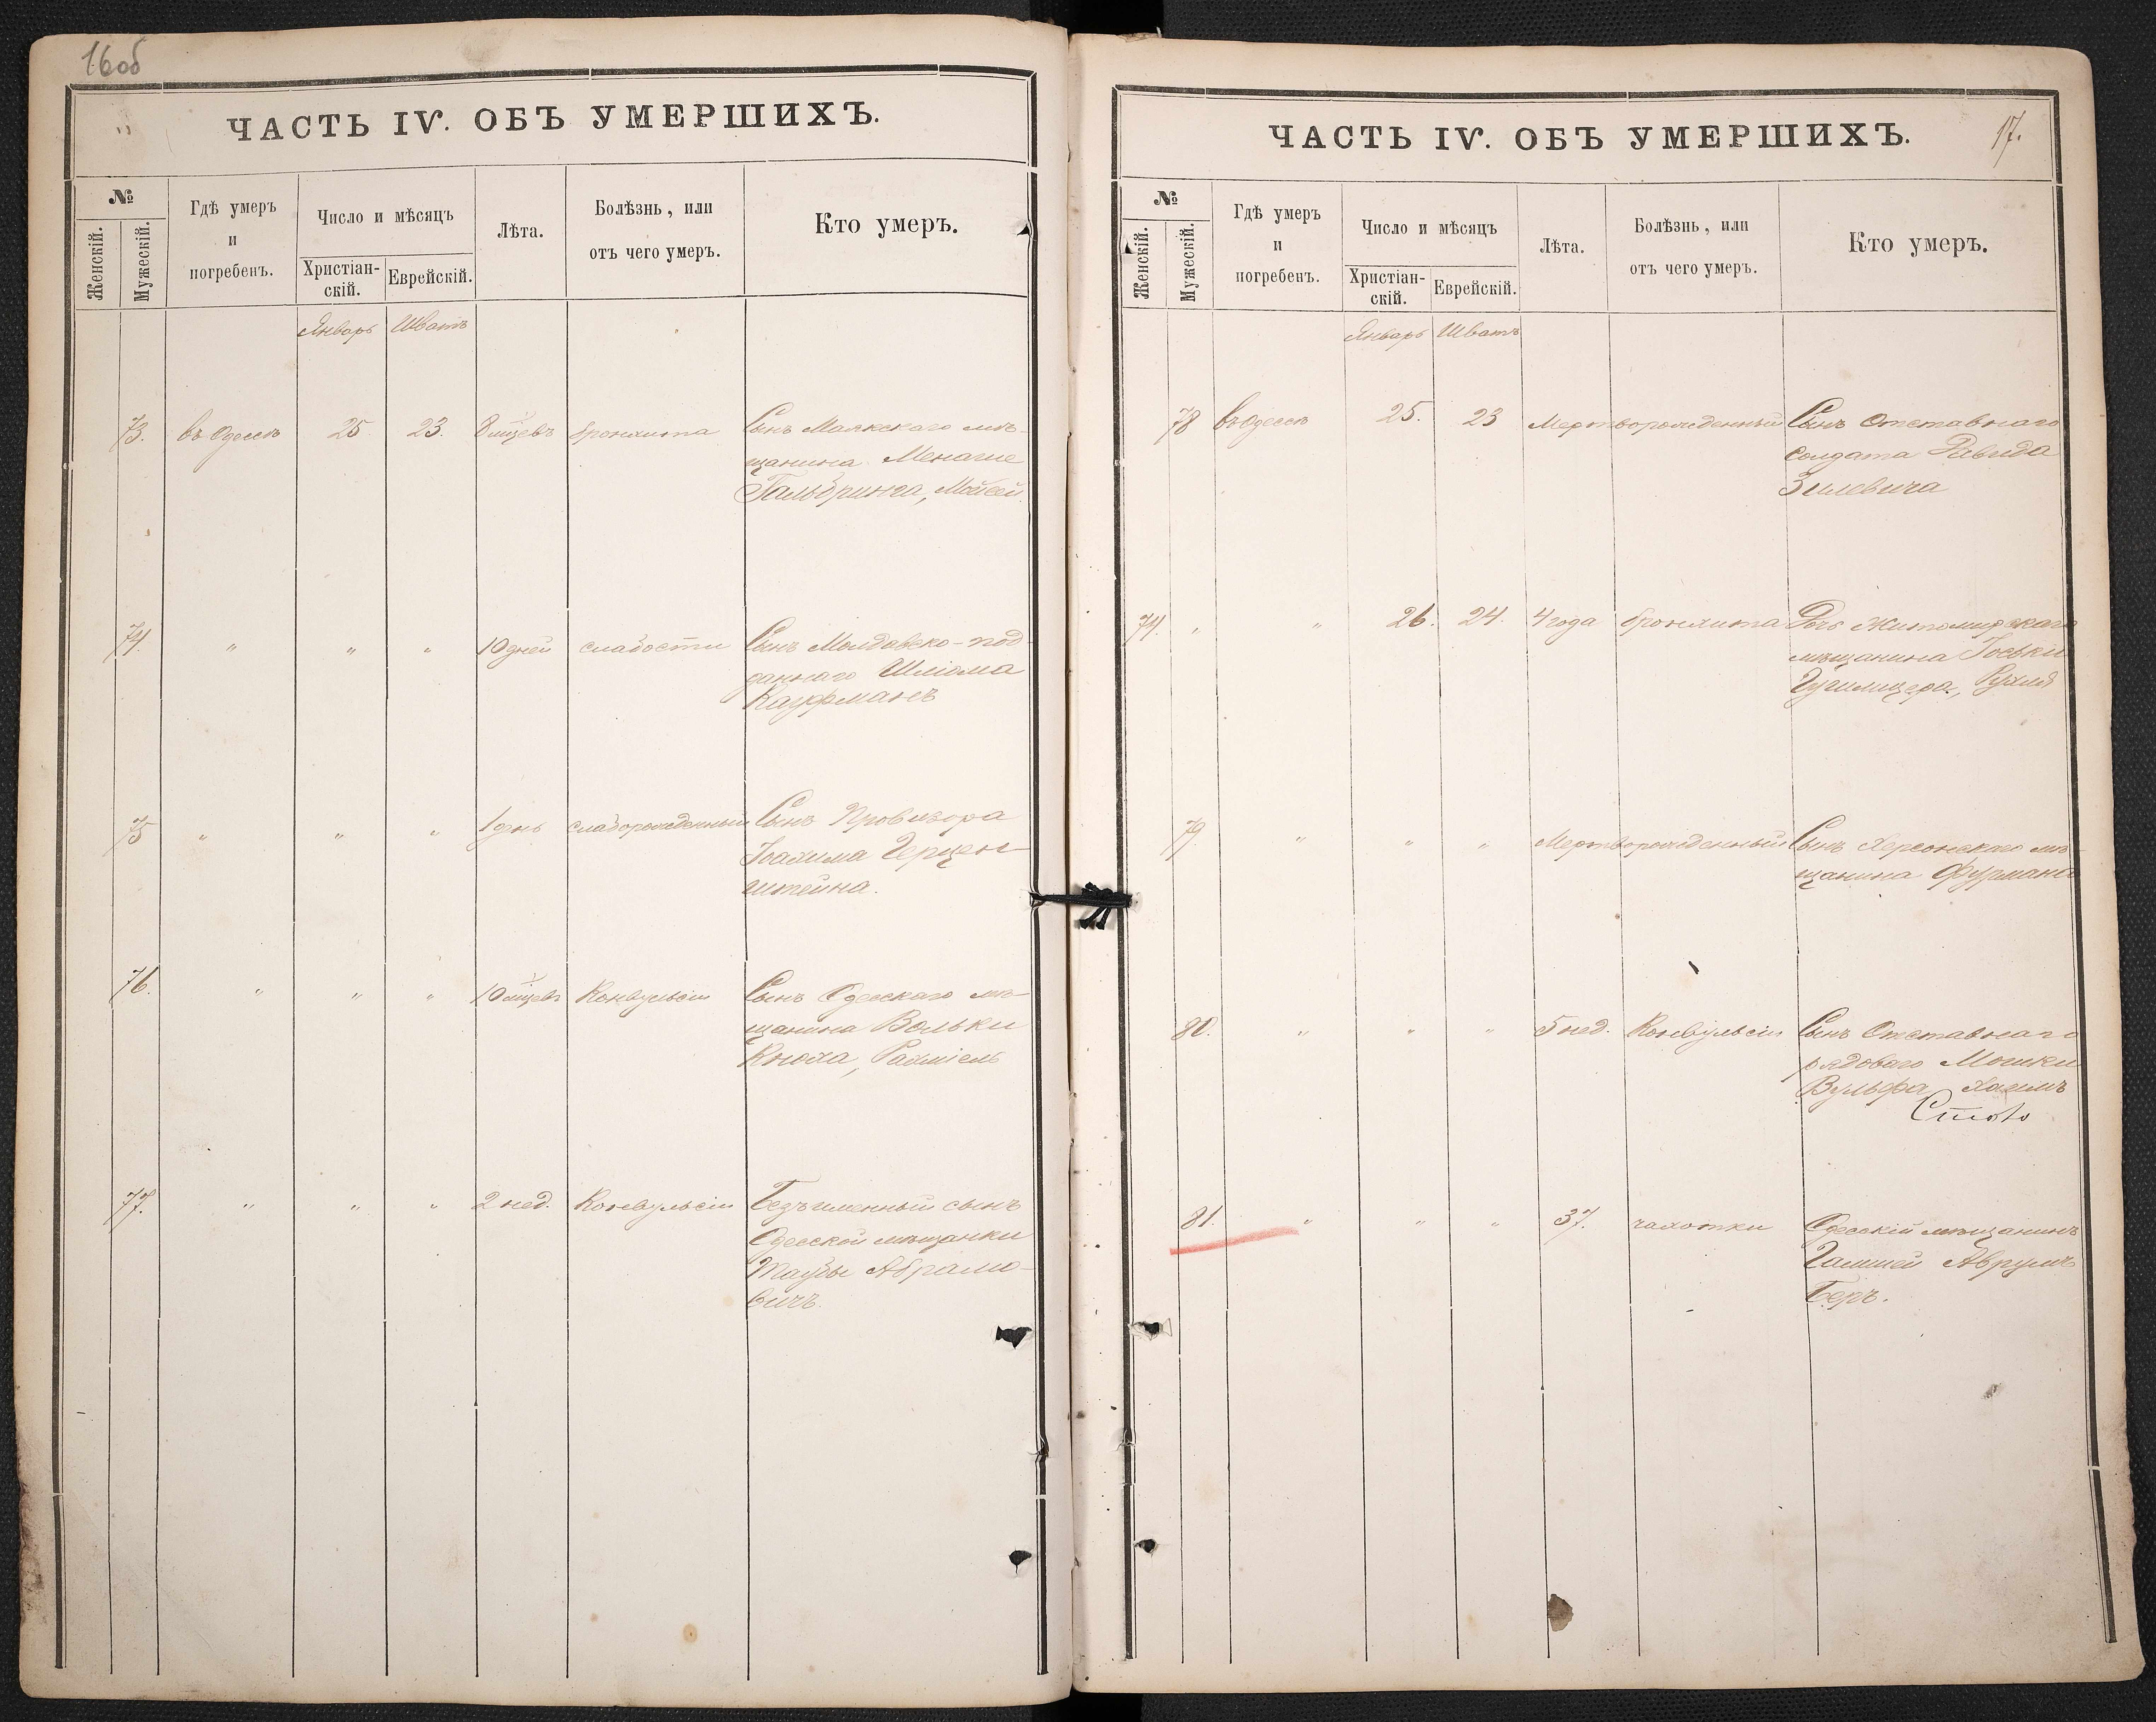 16об
ЧАСТЬ IV. ОБЪ УМЕРШИХЪ.
№
Женскій.
Мужескій.
Гдѣ умеръ
и
погребенъ.
Число и мѣсяцъ
Христіан-
скій.
Еврейскій.
Лѣта.
Болѣзнь, или
отъ чего умеръ.
Кто умеръ.
Январь Шватъ
73. въ Одессѣ 25 23. 8 мцевъ бронхита Сынъ Маякскаго мѣ-
щанина Менаше
Гальбринга, Мойсей
74. " " " 10 дней слабости Сынъ Молдавско-под
даннаго Шліома
Кауфманъ
75 " " " 1 день слаборожденный Сынъ Провизора
Іоахима Герцен-
штейна.
76. " " " 10 мцевъ Конвульсіи Сынъ Одесскаго мѣ-
щанина Вольки
Кнюха, Рахміель
77. " " " 2 нед. Конвульсіи Безъименный сынъ
Одесской мѣщанки
Таубы Абрамо-
вичъ.
ЧАСТЬ IV. ОБЪ УМЕРШИХЪ.
17.
№
Женскій.
Мужескій.
Гдѣ умеръ
и
погребенъ.
Число и мѣсяцъ
Христіан-
скій.
Еврейскій.
Лѣта.
Болѣзнь, или
отъ чего умеръ.
Кто умеръ.
Январь Шватъ
78 въ Одессѣ 25. 23 Мертворожденный Сынъ Отставнаго
Солдата Давида
Зилевича
74. " " 26. 24. 4 года бронхита Дочь Житомирскаго
мѣщанина Іоськи
Рухля
79. " " " Мертворожденный Сынъ Херсонскаго мѣ-
щанина Фурмана
80. " " " 5 нед. Конвульсіи Сынъ Отставнаго
рядоваго Мошки
Вульфа, Хаимъ
81. " " " 37. чахотки Одесскій мѣщанинъ
Аврумъ
Беръ.